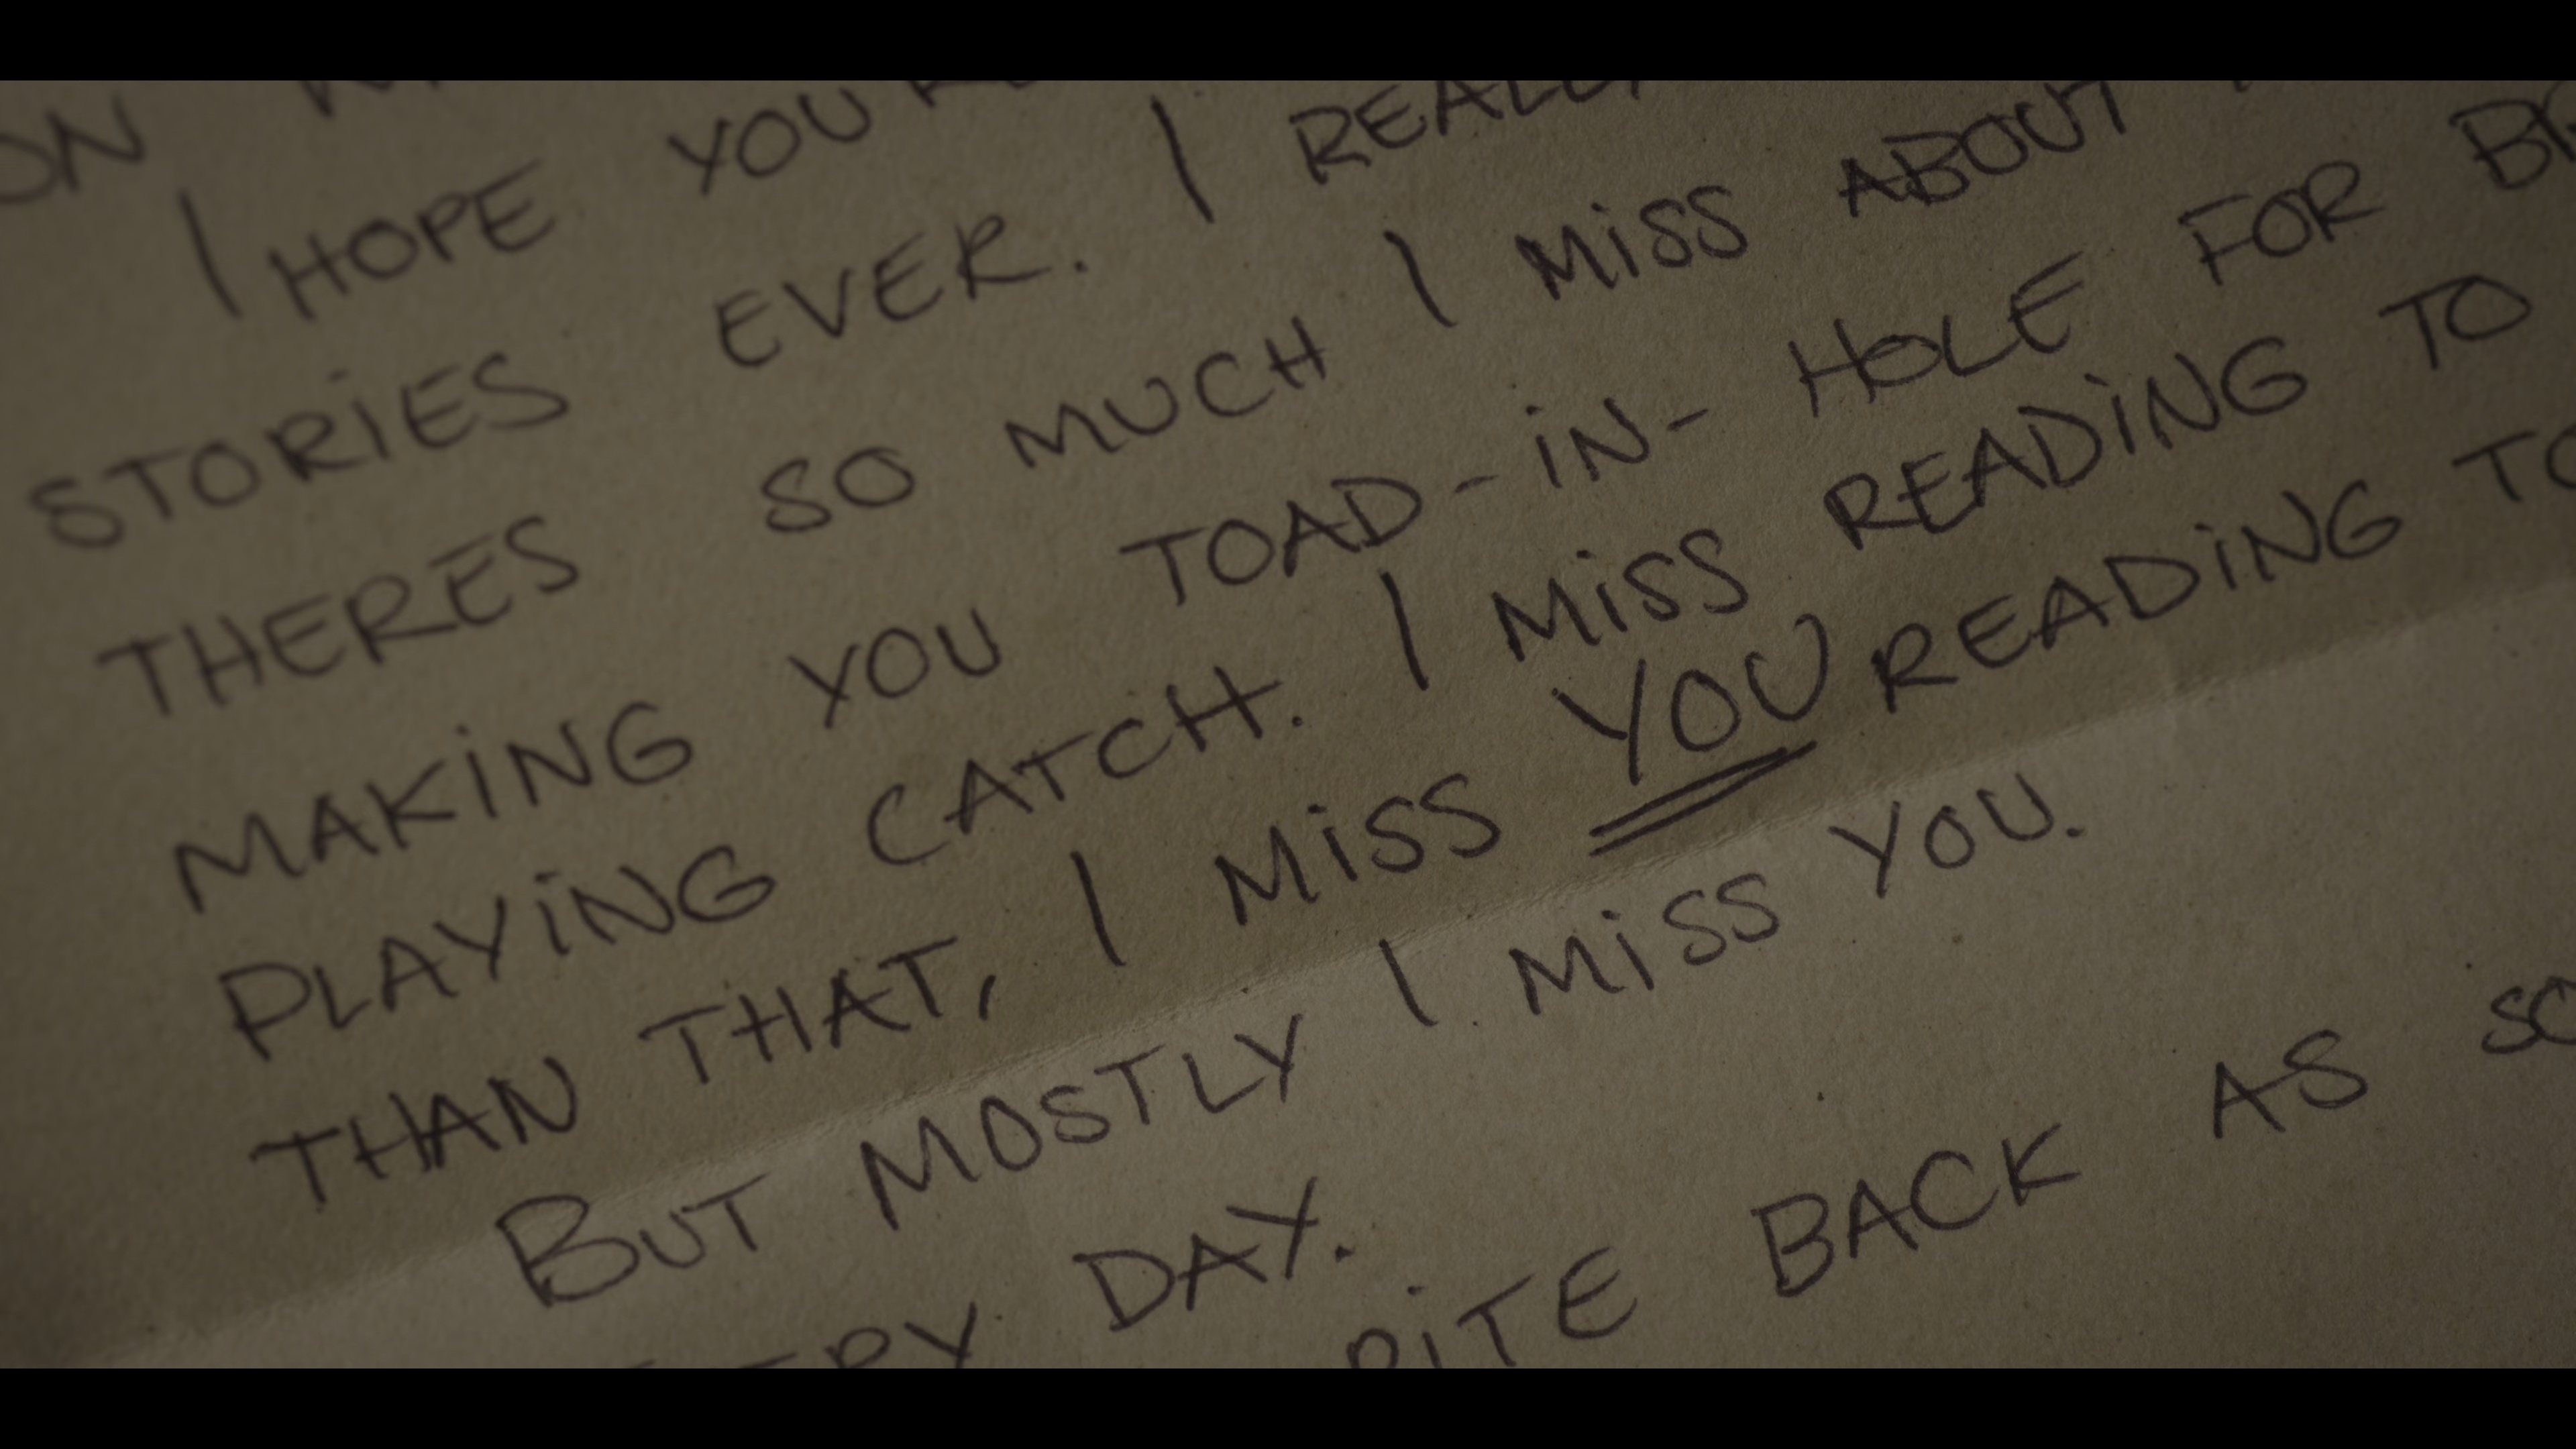 ON
I HOPE YOU
STORIES EVER. I REALL
THERES SO MUCH I MISS ABOUT
MAKING YOU TOAD-IN-HOLE FOR
PLAYING CATCH. I MISS READING TO
THAN THAT, I MISS YOU READING TO
BUT MOSTLY I MISS YOU.
DAY.
RITE BACK AS SO